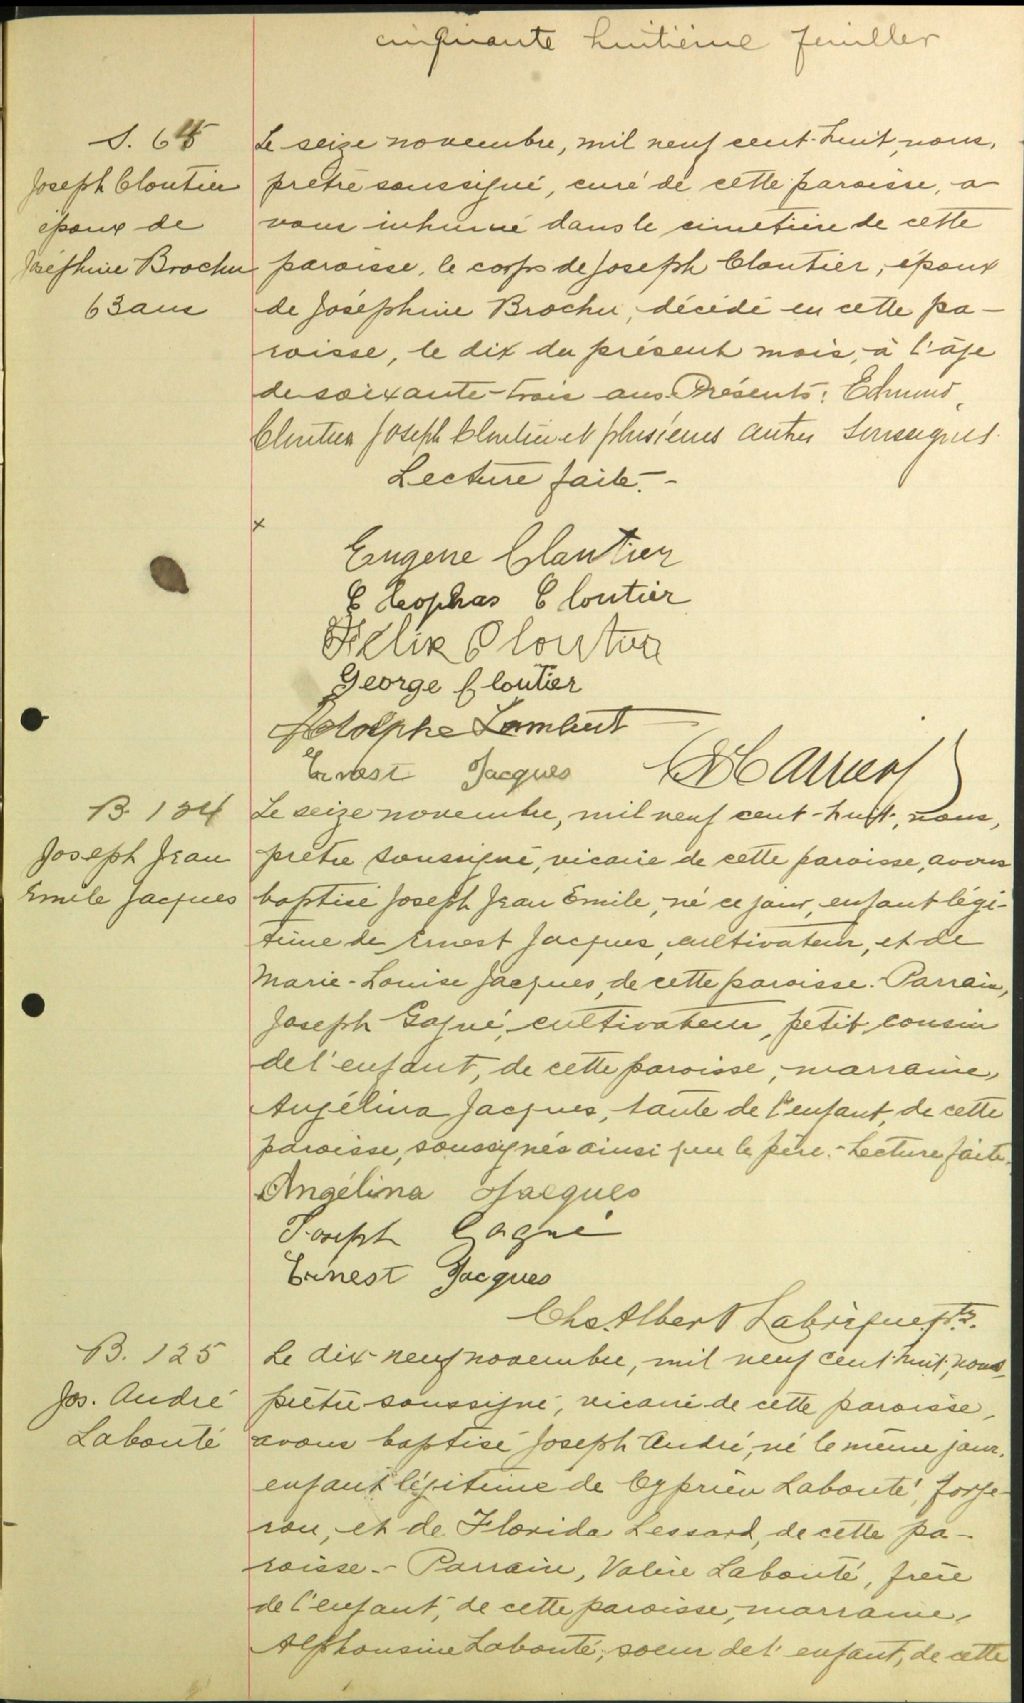 cinquante huitième feuillet
S. 65
Joseph Cloutier
époux de
Joséphine Brochu
63 ans
Le seize novembre, mil neuf cent-huit, nous,
prêtre soussigné, curé de cette paroisse, a-
vons inhumé dans le cimetière de cette
paroisse, le corps de Joseph Cloutier, époux
de Joséphine Brochu, décédé en cette pa-
roisse, le dix du présent mois, à l'âge
de soixante-trois ans. Présents: Edmond
Cloutier Joseph Cloutier et plusieurs autres soussignés.
Lecture faite.-
x
Eugene Cloutier
Cleophas Cloutier
Félix Cloutier
George Cloutier
Adolphe Lambert
Ernest Jacques
B. 124
Joseph Jean
Emile Jacques
Le seize novembre, mil neuf cent-huit, nous,
prêtre soussigné, vicaire de cette paroisse, avons
baptisé Joseph Jean Emile, né ce jour, enfant légi-
time de Ernest Jacques, cultivateur, et de
Marie-Louise Jacques, de cette paroisse. Parrain,
Joseph Gagné, cultivateur, petit cousin
de l'enfant, de cette paroisse, marraine,
Angélina Jacques, tante de l'enfant, de cette
paroisse, soussignés ainsi que le père.- Lecture faite.
Angélina Jacques
Joseph Gagné
Ernest Jacques
Chs. Albert Labrèque ptr.
B. 125
Jos. André
Labonté
Le dix-neuf novembre, mil neuf cent-huit, nous,
prêtre soussigné, vicaire de cette paroisse,
avons baptisé Joseph André, né le même jour,
enfant légitime de Cyprien Labonté, forge-
ron, et de Florida Lessard, de cette pa-
roisse.- Parrain, Valère Labonté, frère
de l'enfant, de cette paroisse, marraine,
Alphonsine Labonté, soeur de l'enfant, de cette